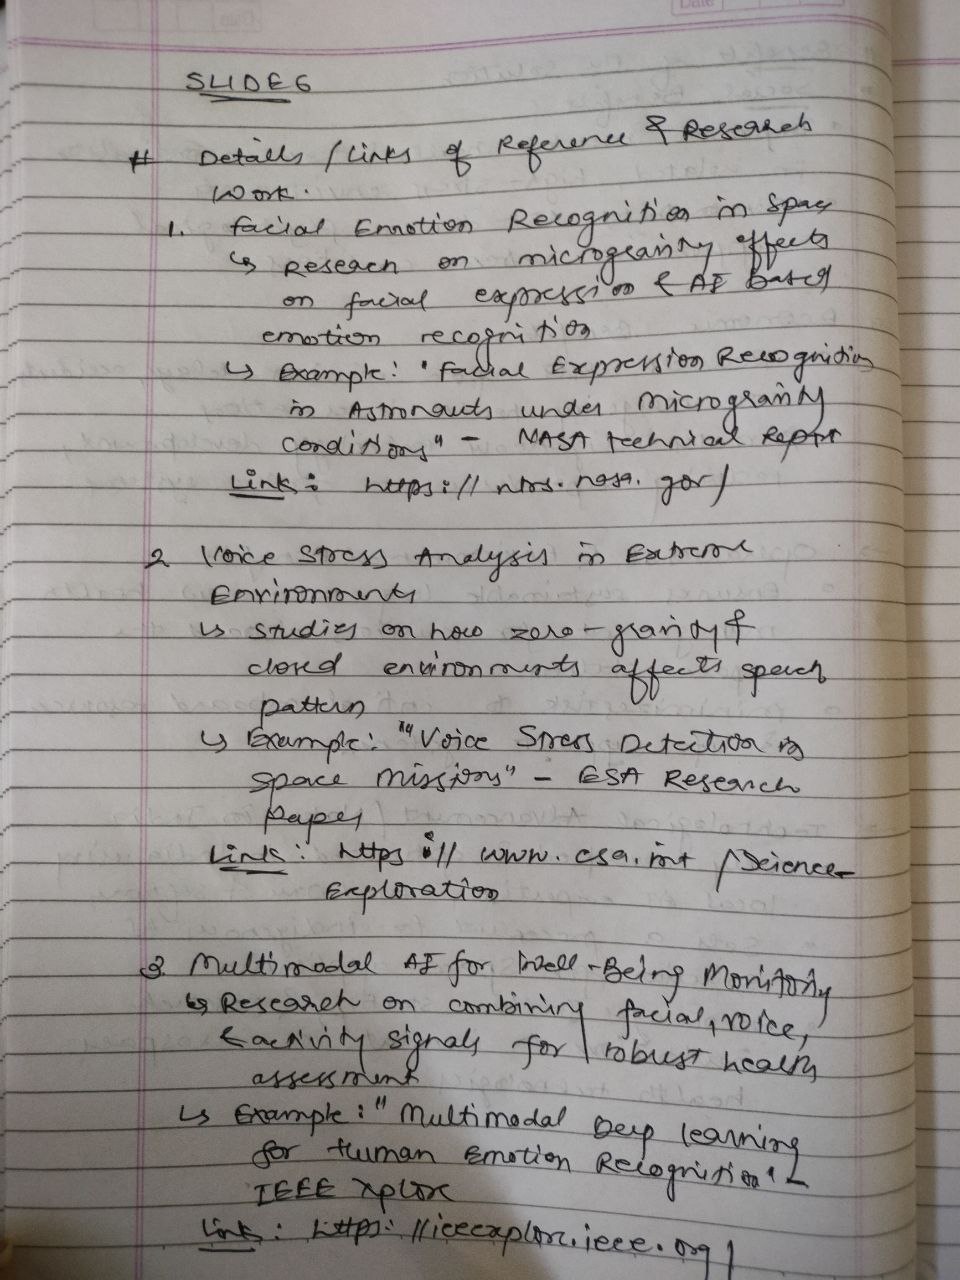 Date
SLIDE 6
# Details / Links of Reference & Research
Work.
1. Facial Emotion Recognition in Space
↳ Reseach on microgravity effects
on facial expression & AI based
emotion recognition
↳ Example: "Facial Expression Recognition
in Astronauts under Microgravity
Conditions" - NASA technical Report
Link: https://ntrs.nasa.gov/
2 Voice Stress Analysis in Extreme
Environments
↳ Studies on how zero-gravity &
closed environments affects speech
pattern
↳ Example: "Voice Stress Detection in
Space Missions" - ESA Research
Paper
Link: https://www.esa.int/Science-
Exploration
3 Multimodal AI for Well-Being Monitoring
↳ Research on combining facial, voice,
& activity signals for robust health
assessment
↳ Example: "Multimodal Deep learning
for Human Emotion Recognition" -
IEEE Xplore
Link: https://ieeexplore.ieee.org/